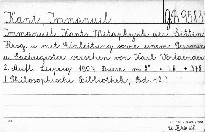 Kant, Immanuel
Immanuel Kants Metaphysik der Sitten
Hrsg. u. mit Einleitung sowie einem Personen-
u. Sachregister versehen von Karl Vorländer
2. Aufl. Leipzig 1907 Dürr 8° 378
(Philosophische Bibliothek, Bd. 42)